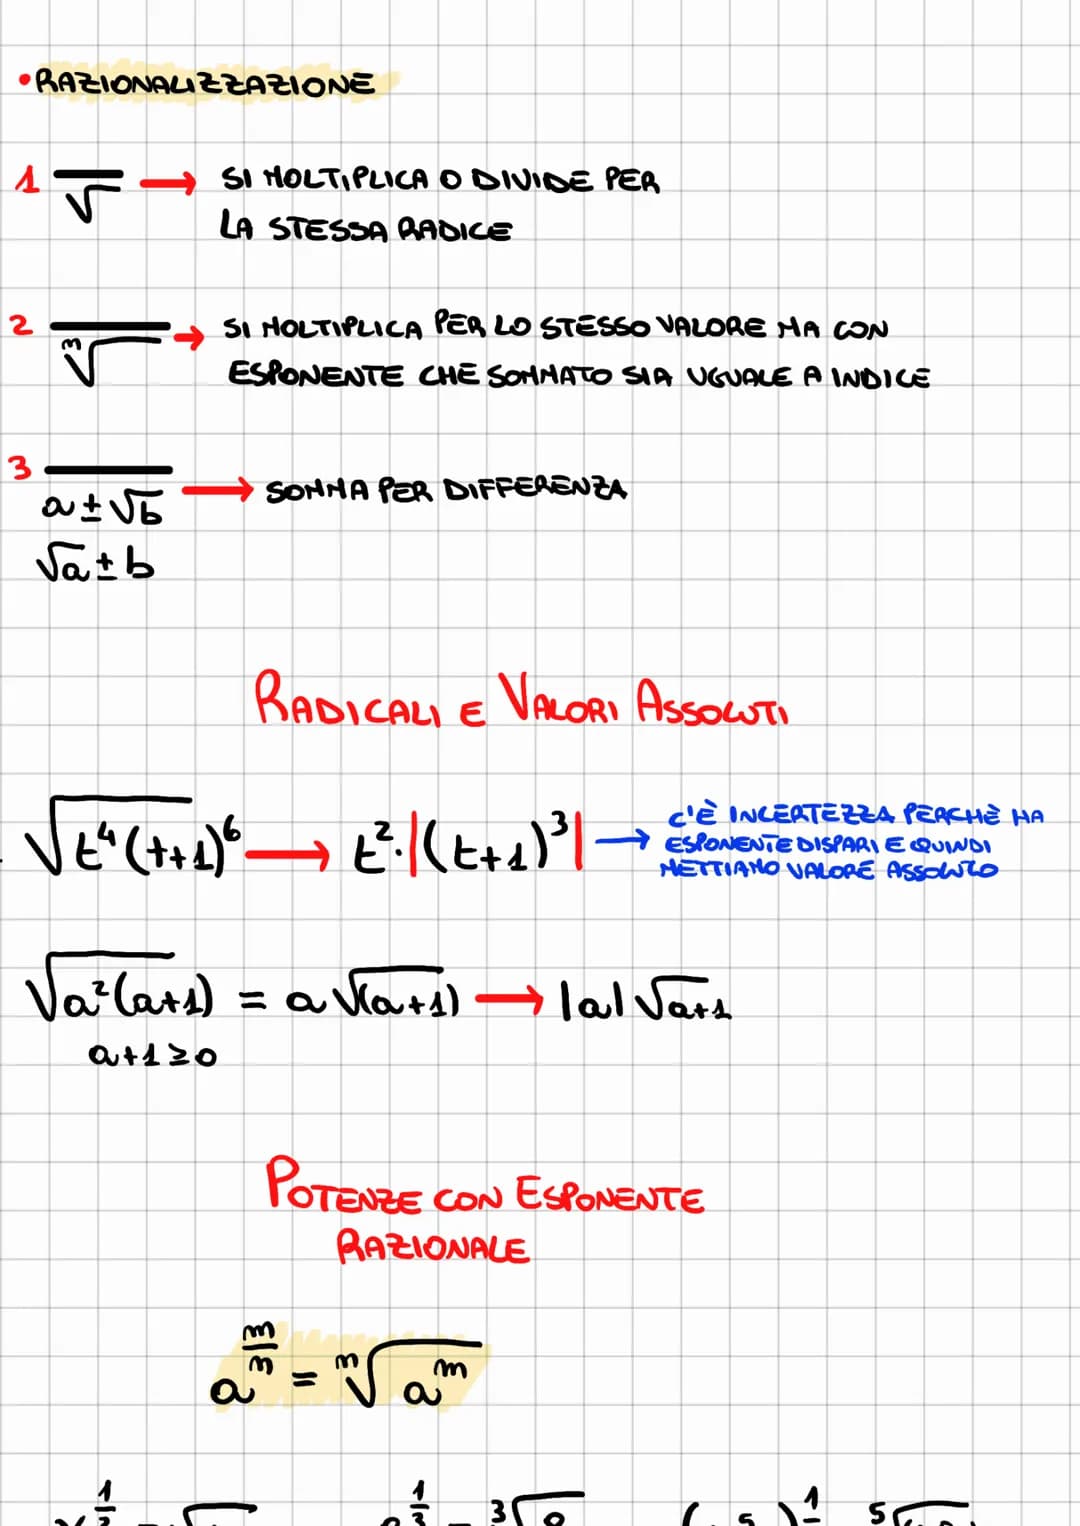 • RAZIONALIZZAZIONE
1 —/√ → SI MOLTIPLICA O DIVIDE PER
LA STESSA RADICE
2 —/ⁿ√ → SI MOLTIPLICA PER LO STESSO VALORE MA CON
ESPONENTE CHE SOMMATO SIA UGUALE A INDICE
3 —/a±√b → SOMMA PER DIFFERENZA
√a±b
RADICALI E VALORI ASSOLUTI
√t⁴(t+1)⁶ → t²·|(t+1)³| → C'È INCERTEZZA PERCHÈ HA
ESPONENTE DISPARI E QUINDI
METTIAMO VALORE ASSOLUTO
√a²(a+1) = a√(a+1) → |a|√a+1
a+1≥0
POTENZE CON ESPONENTE
RAZIONALE
a^(m/n) = ⁿ√a^m